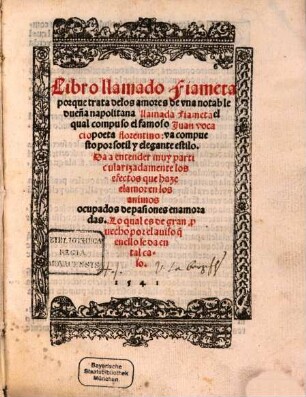 Libro llamado Fiameta
porque trata delos amores de vna notable
dueña napolitana llamada Fiameta el
qual compuso el famoso Juan voca
cio poeta florentino: va compue
sto por sotil y elegante estilo.
Da a entender muy parti
cularizadamente los
efectos que haze
el amor en los
animos
ocupados de passiones enamora
das. Lo qual es de gran ꝓ
uecho por el auiso q̃
en ello se da en
tal ca-
so.
BIBLIOTHECA
REGIA
MONACENSIS
1541
Bayerische
Staatsbibliothek
München